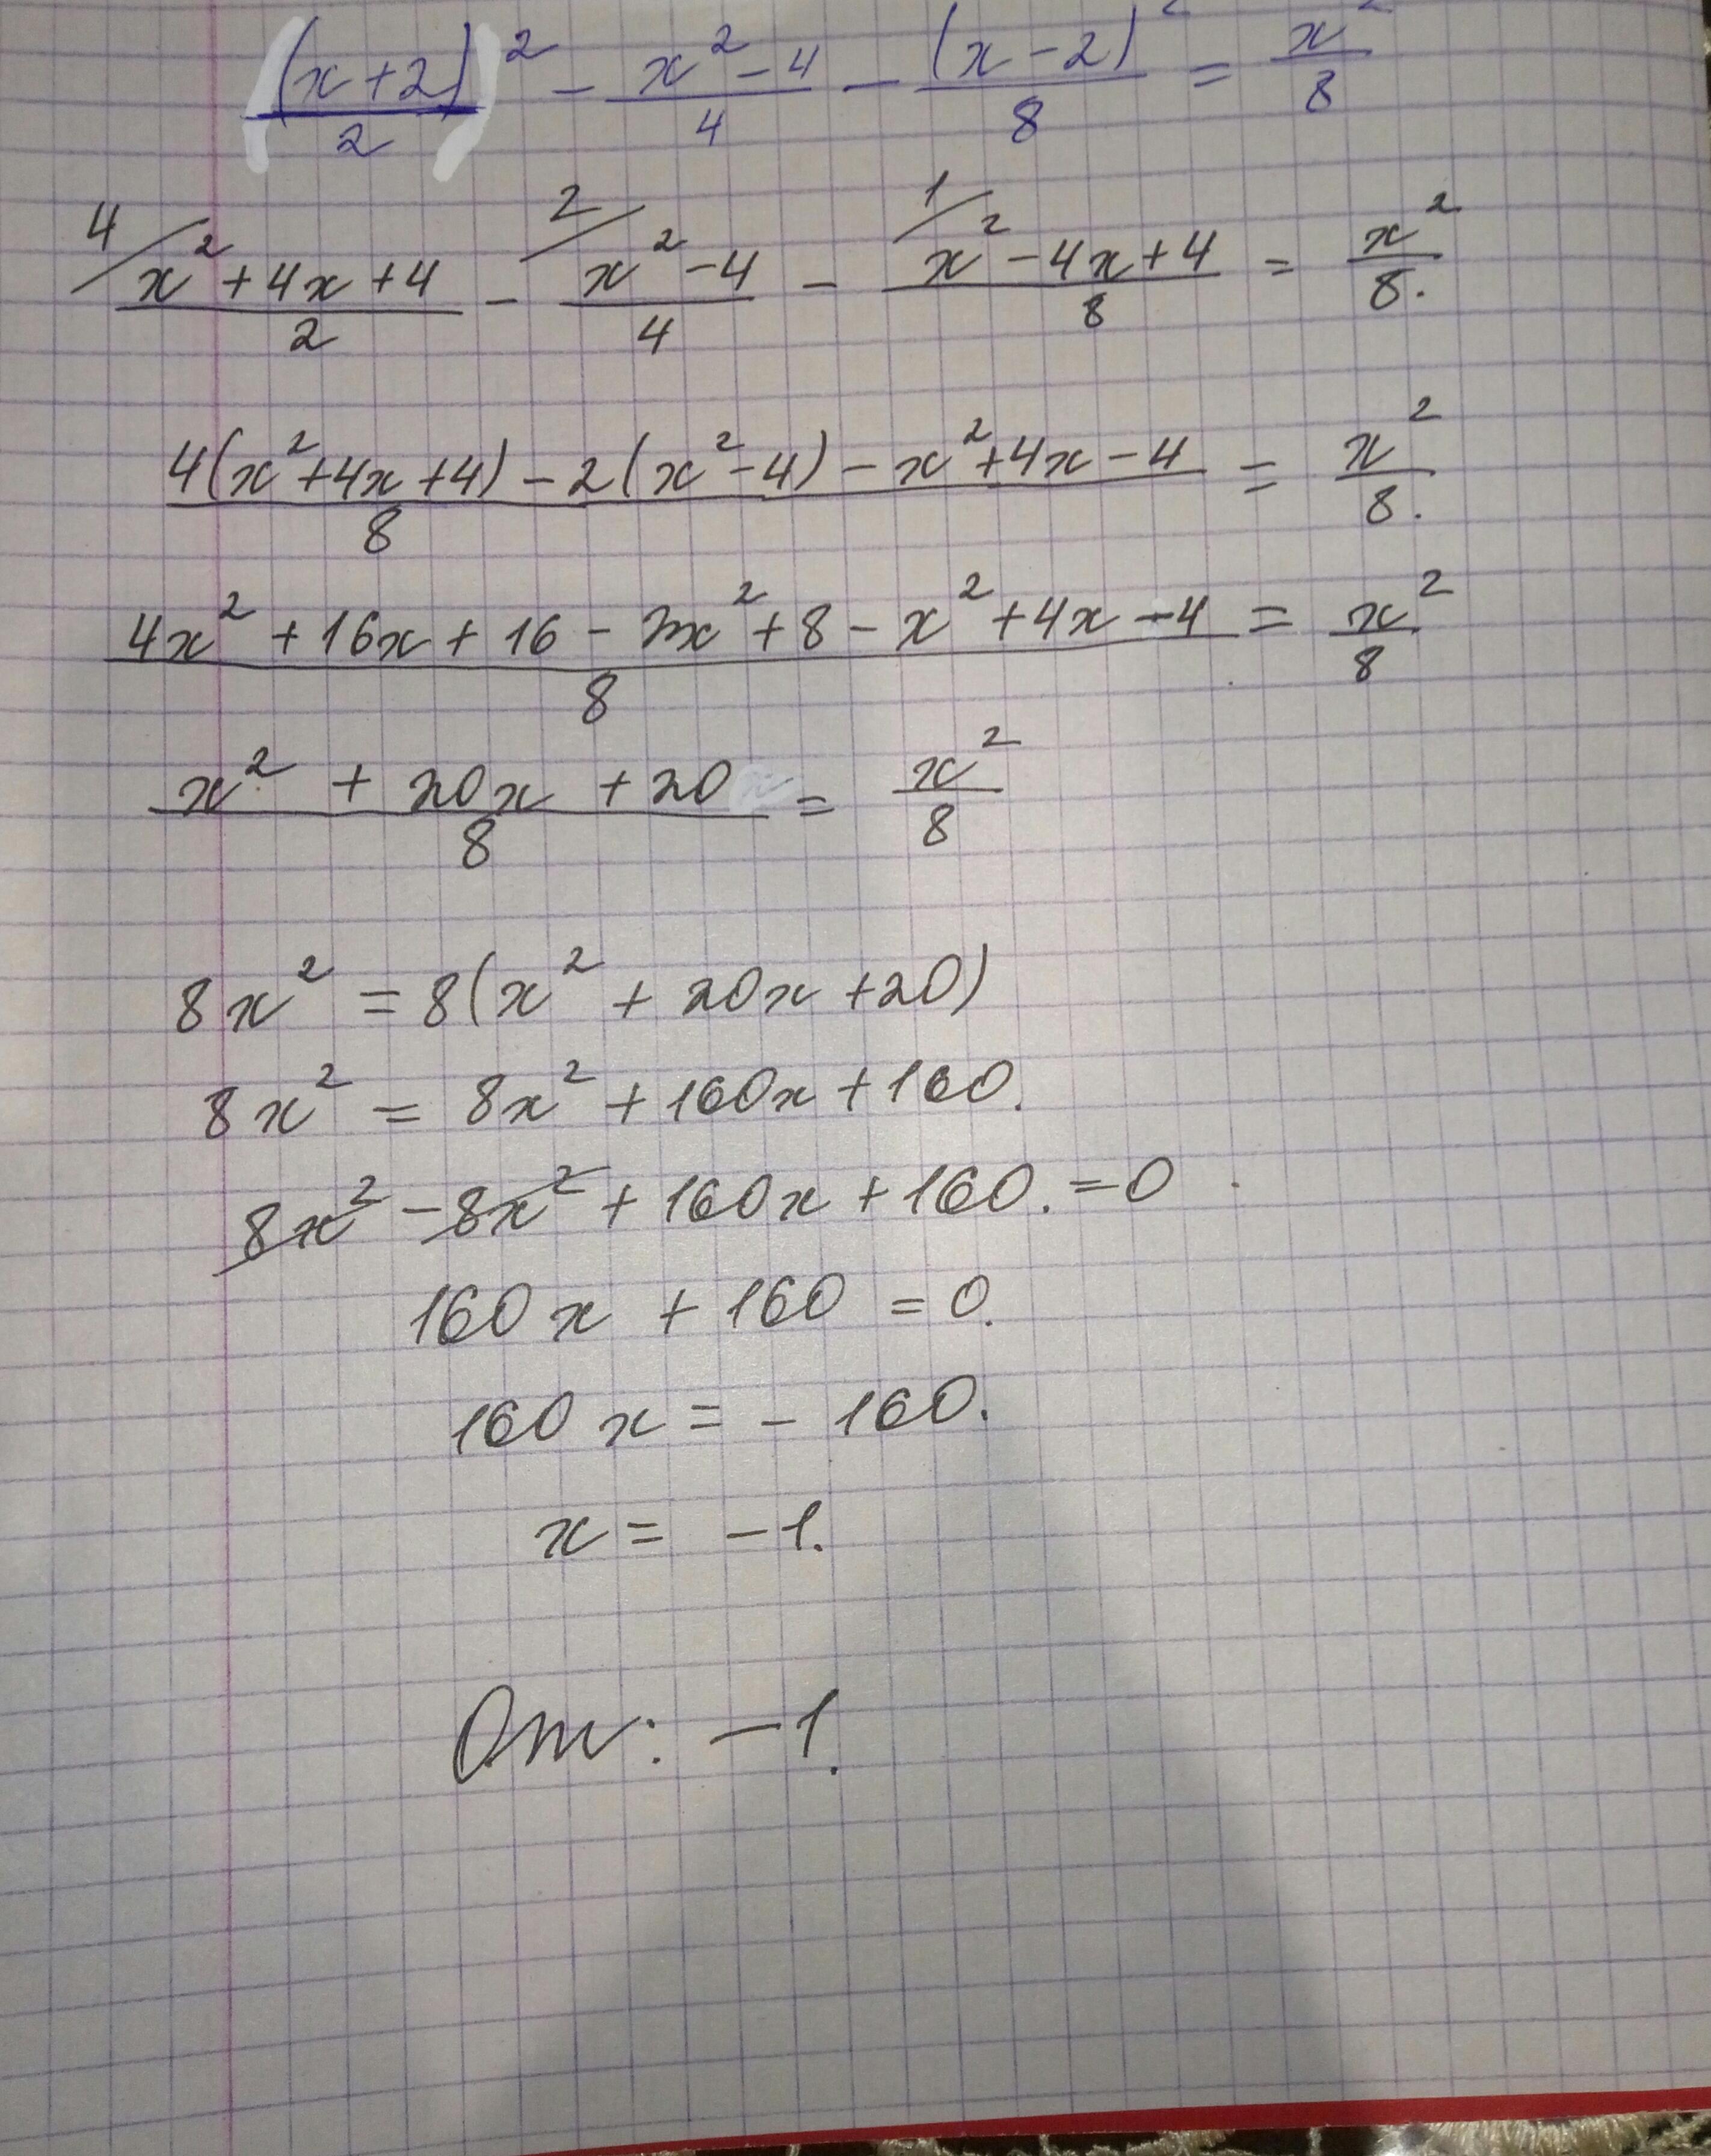 (x+2)²/2 - (x²-4)/4 - (x-2)²/8 = x²/8
4/ (x²+4x+4)/2 - 2/ (x²-4)/4 - 1/ (x²-4x+4)/8 = x²/8.
(4(x²+4x+4)-2(x²-4)-x²+4x-4)/8 = x²/8.
(4x²+16x+16-2x²+8-x²+4x-4)/8 = x²/8
(x²+20x+20)/8 = x²/8
8x² = 8(x²+20x+20)
8x² = 8x²+160x+160.
8x²-8x²+160x+160.=0
160x+160=0.
160x=-160.
x=-1.
Отв: -1.